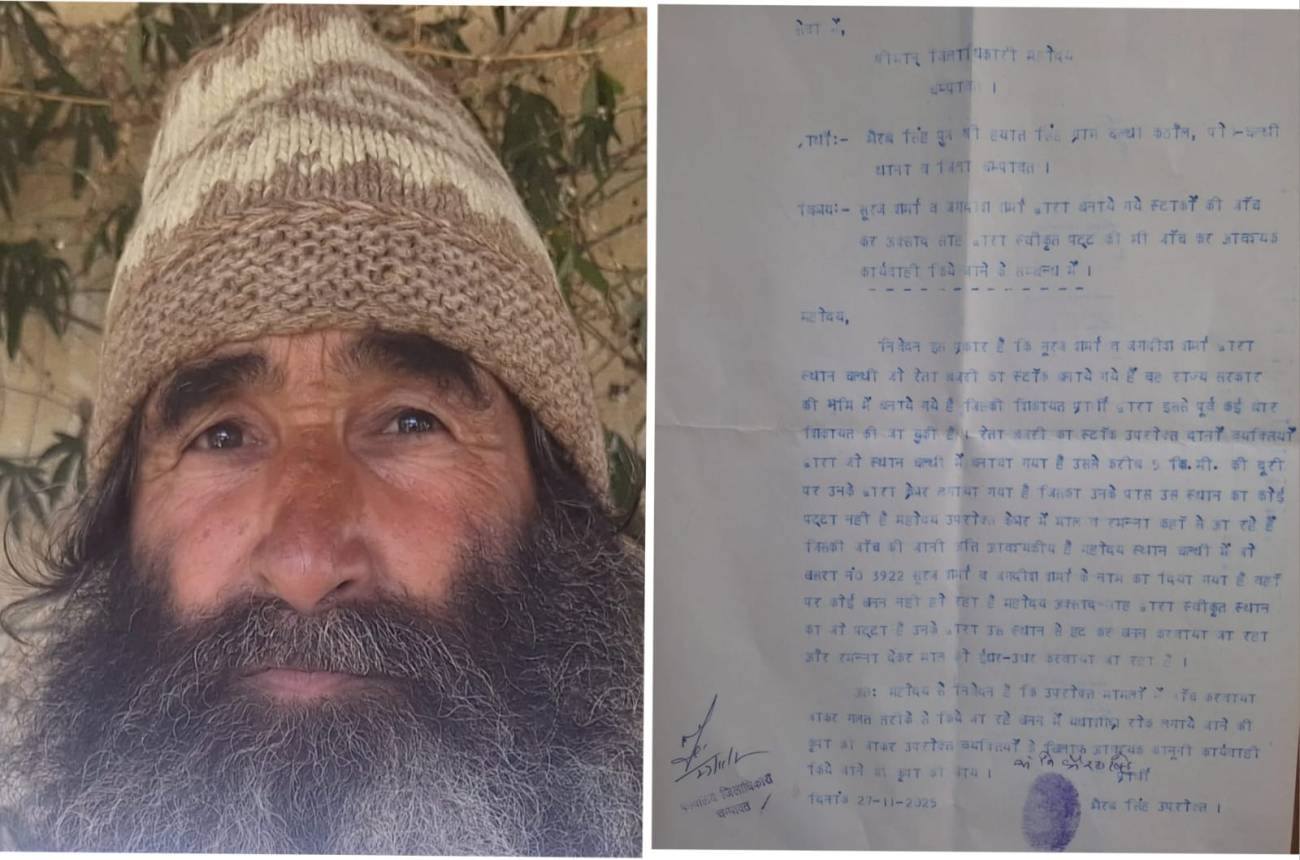 सेवा में,
श्रीमान् जिलाधिकारी महोदय
चम्पावत ।
प्रार्थी:- भैरब सिंह पुत्र श्री हयात सिंह ग्राम चल्थी कठौल, पो0-चल्थी
थाना व जिला चम्पावत ।
विषय:- सूरज शर्मा व जगदीश शर्मा द्वारा बनाये गये स्टाकों की जाँच
कर साह द्वारा स्वीकृत पट्टे की भी जाँच कर आवश्यक
कार्यवाही किये जाने के सम्बन्ध में ।
महोदय,
निवेदन इस प्रकार है कि सूरज शर्मा व जगदीश शर्मा द्वारा
स्थान चल्थी जो रेता बजरी का स्टॉक बनाये गये हैं वह राज्य सरकार
की भूमि में बनाये गये है जिसकी शिकायत प्रार्थी द्वारा इससे पूर्व कई बार
शिकायत की जा चुकी है । रेता बजरी का स्टॉक उपरोक्त दोनों व्यक्तियों
द्वारा जो स्थान चल्थी में बनाया गया है उससे करीब 5 कि.मी. की दूरी
पर उनके द्वारा क्रेशर लगाया गया है जिसका उनके पास उस स्थान का कोई
पट्टा नही है महोदय उपरोक्त क्रेशर में माल व रमन्ना कहाँ से आ रहे है
जिसकी जाँच की जानी अति आवश्यकीय है महोदय स्थान चल्थी में जो
खसरा नं0 3922 सूरज शर्मा व जगदीश शर्मा के नाम का दिया गया है वहाँ
पर कोई खनन नही हो रहा है महोदय साह द्वारा स्वीकृत स्थान
का जो पट्टा है उनके द्वारा उस स्थान से हट कर खनन करवाया जा रहा
और रमन्ना देकर माल को ईधर-उधर करवाया जा रहा है ।
अत: महोदय से निवेदन है कि उपरोक्त मामलों में जाँच करवाया
जाकर गलत तरीके से किये जा रहे खनन में यथाशीघ्र रोक लगाये जाने की
कृपा की जाकर उपरोक्त व्यक्तियों के खिलाफ आवश्यक कानूनी कार्यवाही
किये जाने की कृपा की जाय ।
प्रार्थी
दिनांक 27-11-2025 भैरब सिंह उपरोक्त ।
कार्यालय जिलाधिकारी
चम्पावत